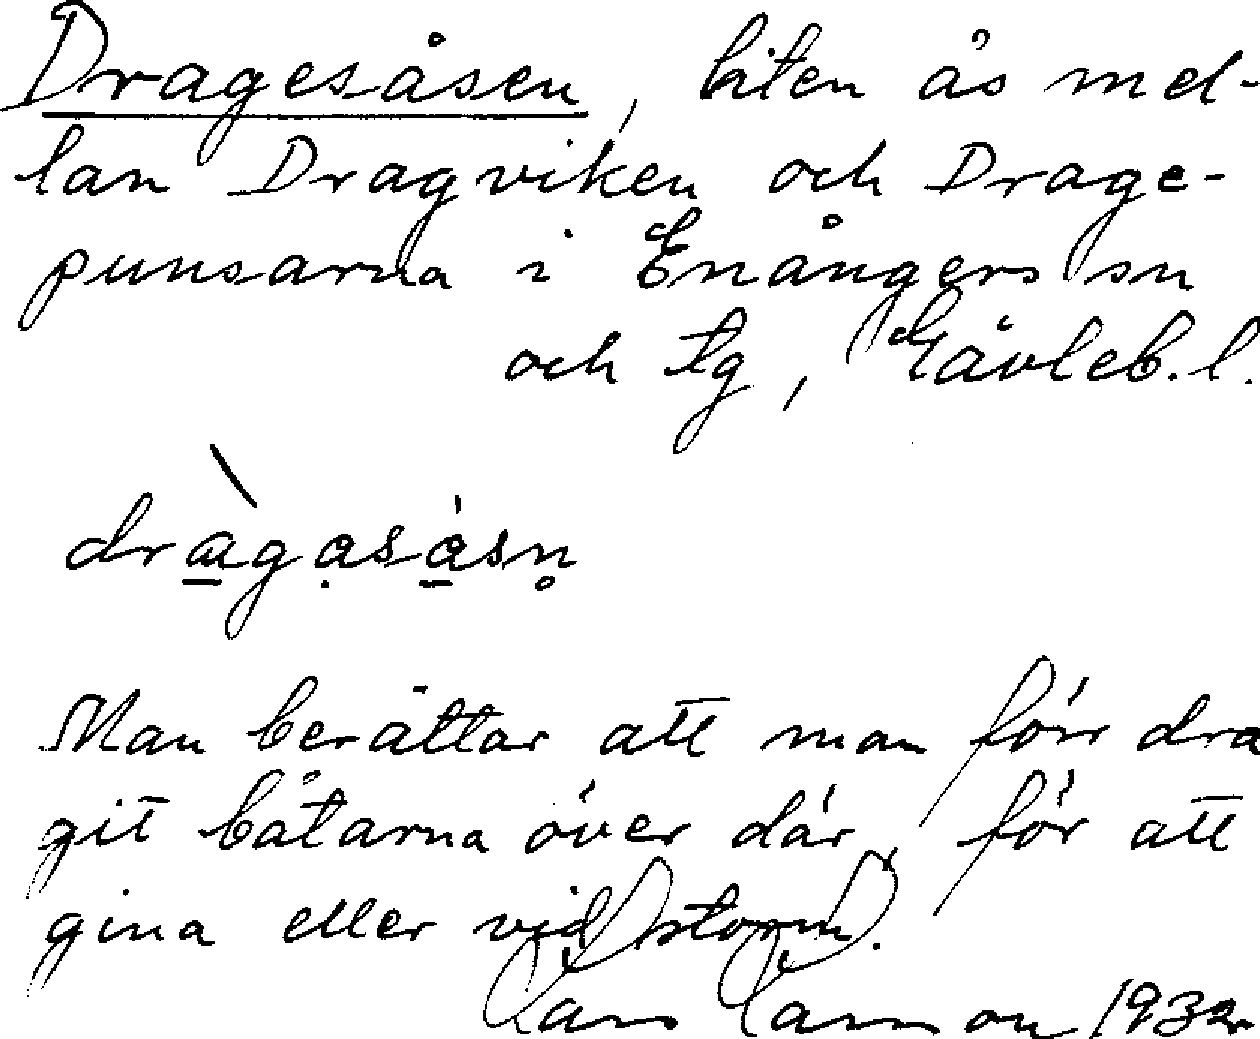 Dragesåsen, liten ås mel-
lan Dragviken och Drage-
punsarna i Enångers sn
och tg, Gävleb. l.
dràgasásn̥
Man berättar att man förr dra
git båtarna över där, för att
gina eller vid storm.
Lars Larsson 1932